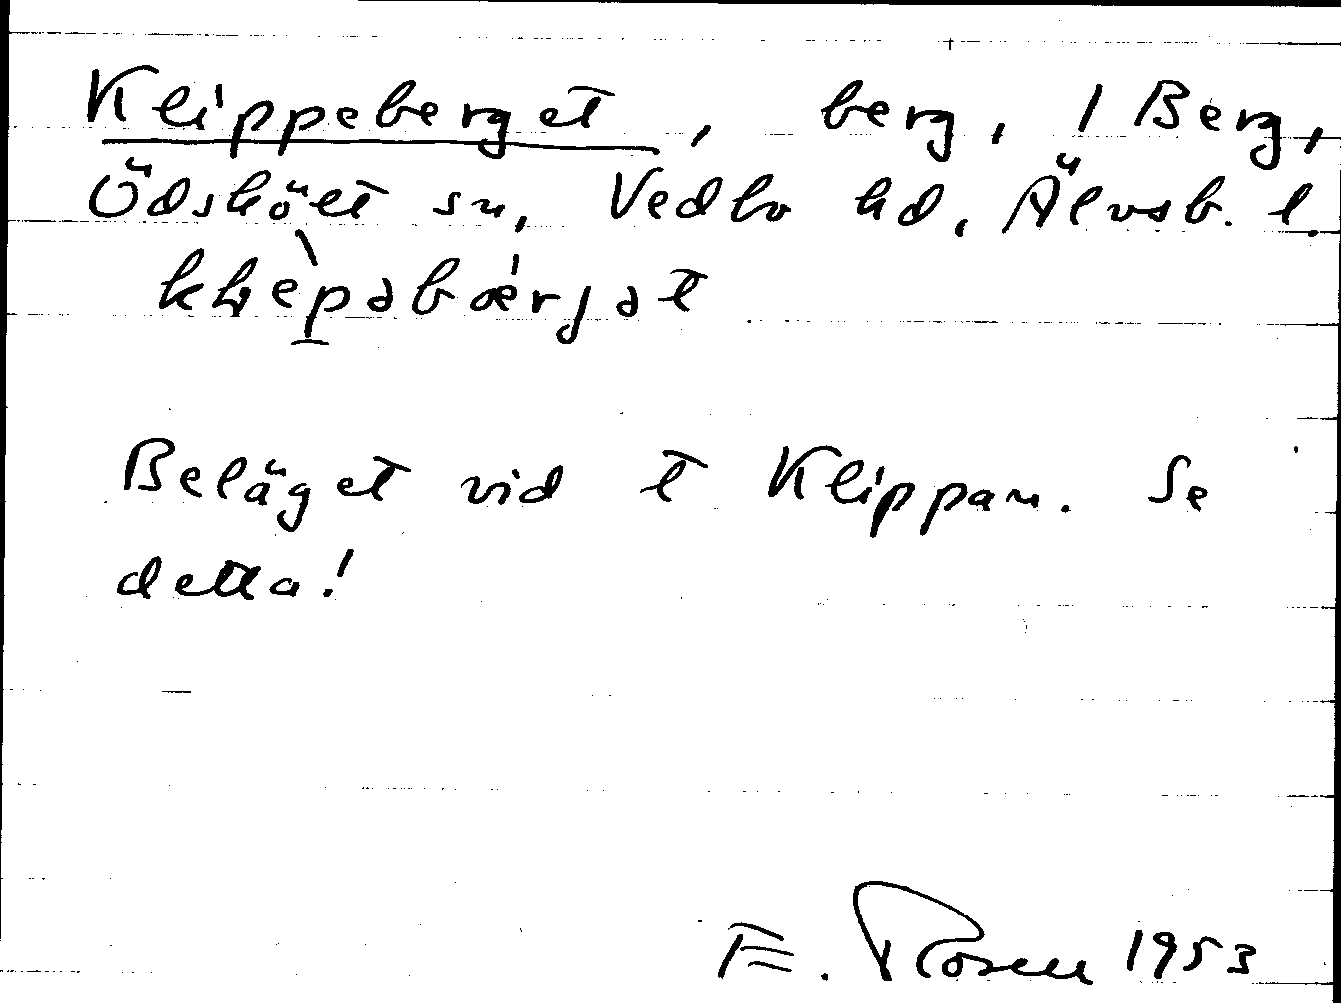 Klippeberget, berg, 1 Berg,
Ödskölt sn, Vedbo hd, Älvsb. l.
Beläget vid t Klippan. Se
detta!
E. Rosell 1953